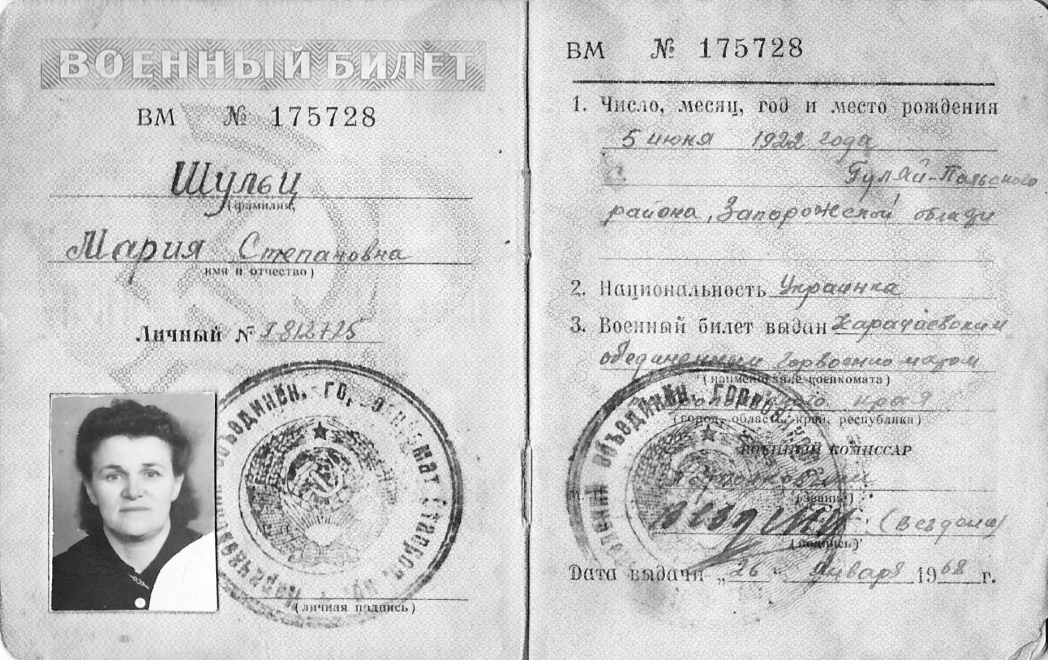 ВОЕННЫЙ БИЛЕТ
ВМ № 175728
Шульц
(фамилия)
Мария Степановна
имя и отчество)
Личный №
(личная подпись)
ВМ № 175728
1. Число, месяц, год и место рождения
5 июня 1922 года
Гуляй-Польского
района, Запорожской
2. Национальность Украинка
3. Военный билет выдан Карачаевским
объединенным горвоенкоматом
(наименование военкомата)
края
(город, область, край, республика)
ВОЕННЫЙ КОМИССАР
Подполковник
(звание)
(подпись)
Дата выдачи „26" января 1968 г.